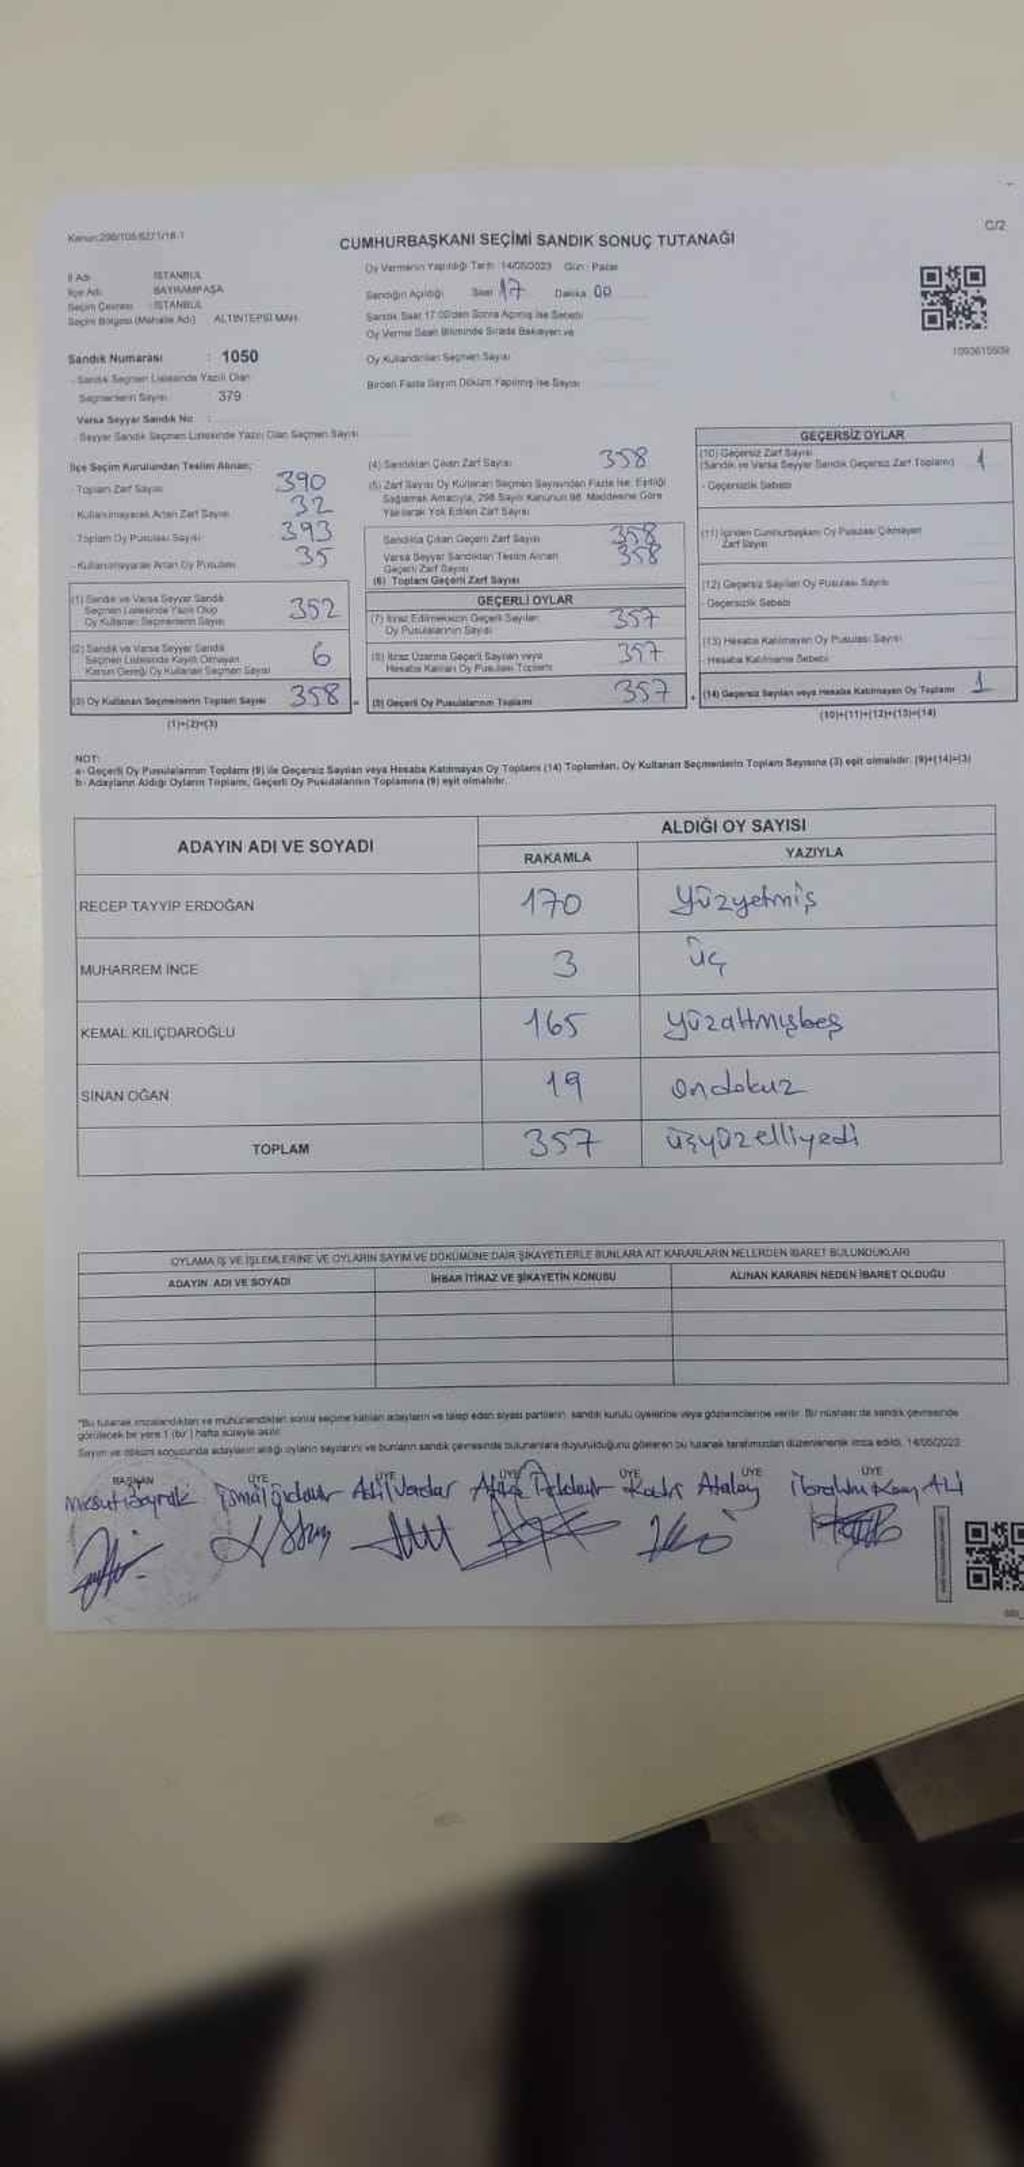 Kanun:298/105/6271/18-1
C/2
CUMHURBAŞKANI SEÇİMİ SANDIK SONUÇ TUTANAĞI
İl Adı : İSTANBUL
İlçe Adı : BAYRAMPAŞA
Seçim Çevresi : İSTANBUL
Seçim Bölgesi (Mahalle Adı) : ALTINTEPSİ MAH.
Sandık Numarası : 1050
- Sandık Seçmen Listesinde Yazılı Olan
Seçmenlerin Sayısı : 379
Varsa Seyyar Sandık No :
- Seyyar Sandık Seçmen Listesinde Yazılı Olan Seçmen Sayısı
Oy Vermenin Yapıldığı Tarih : 14/05/2023 Gün : Pazar
Sandığın Açıldığı Saat 17 Dakika 00
Sandık Saat 17.00'den Sonra Açılmış İse Sebebi
Oy Verme Saati Bitiminde Sırada Bekleyen ve
Oy Kullandırılan Seçmen Sayısı
Birden Fazla Sayım Döküm Yapılmış İse Sayısı
İlçe Seçim Kurulundan Teslim Alınan;
- Toplam Zarf Sayısı 390
- Kullanılmayarak Artan Zarf Sayısı 32
- Toplam Oy Pusulası Sayısı 393
- Kullanılmayarak Artan Oy Pusulası 35
(1) Sandık ve Varsa Seyyar Sandık
Seçmen Listesinde Yazılı Olup
Oy Kullanan Seçmenlerin Sayısı 352
(2) Sandık ve Varsa Seyyar Sandık
Seçmen Listesinde Kayıtlı Olmayan
Kanun Gereği Oy Kullanan Seçmen Sayısı 6
(3) Oy Kullanan Seçmenlerin Toplam Sayısı 358
(1)+(2)=(3)
(4) Sandıktan Çıkan Zarf Sayısı 358
(5) Zarf Sayısı Oy Kullanan Seçmen Sayısından Fazla İse, Eşitliği
Sağlamak Amacıyla, 298 Sayılı Kanunun 98. Maddesine Göre
Yakılarak Yok Edilen Zarf Sayısı
Sandıkta Çıkan Geçerli Zarf Sayısı 358
Varsa Seyyar Sandıktan Teslim Alınan
Geçerli Zarf Sayısı 358
(6) Toplam Geçerli Zarf Sayısı
GEÇERLİ OYLAR
(7) İtiraz Edilmeksizin Geçerli Sayılan
Oy Pusulalarının Sayısı 357
(8) İtiraz Üzerine Geçerli Sayılan veya
Hesaba Katılan Oy Pusulası Toplamı 357
(9) Geçerli Oy Pusulalarının Toplamı 357
GEÇERSİZ OYLAR
(10) Geçersiz Zarf Sayısı
(Sandık ve Varsa Seyyar Sandık Geçersiz Zarf Toplamı) 1
- Geçersizlik Sebebi
(11) İçinden Cumhurbaşkanı Oy Pusulası Çıkmayan
Zarf Sayısı
(12) Geçersiz Sayılan Oy Pusulası Sayısı
- Geçersizlik Sebebi
(13) Hesaba Katılmayan Oy Pusulası Sayısı
- Hesaba Katılmama Sebebi
(14) Geçersiz Sayılan veya Hesaba Katılmayan Oy Toplamı 1
(10)+(11)+(12)+(13)=(14)
NOT:
a- Geçerli Oy Pusulalarının Toplamı (9) ile Geçersiz Sayılan veya Hesaba Katılmayan Oy Toplamı (14) Toplamları, Oy Kullanan Seçmenlerin Toplam Sayısına (3) eşit olmalıdır. (9)+(14)=(3)
b- Adayların Aldığı Oyların Toplamı, Geçerli Oy Pusulalarının Toplamına (9) eşit olmalıdır.
ADAYIN ADI VE SOYADI
ALDIĞI OY SAYISI
RAKAMLA YAZIYLA
RECEP TAYYİP ERDOĞAN 170 yüzyetmiş
MUHARREM İNCE 3 üç
KEMAL KILIÇDAROĞLU 165 yüzaltmışbeş
SİNAN OĞAN 19 ondokuz
TOPLAM 357 üçyüzelliyedi
OYLAMA İŞ VE İŞLEMLERİNE VE OYLARIN SAYIM VE DÖKÜMÜNE DAİR ŞİKAYETLERLE BUNLARA AİT KARARLARIN NELERDEN İBARET BULUNDUKLARI
ADAYIN ADI VE SOYADI İHBAR İTİRAZ VE ŞİKAYETİN KONUSU ALINAN KARARIN NEDEN İBARET OLDUĞU
*Bu tutanak imzalandıktan ve mühürlendikten sonra seçime katılan adayların ve talep eden siyasi partilerin sandık kurulu üyelerine veya gözlemcilerine verilir. Bir nüshası da sandık çevresinde
görülecek bir yere 1 (bir) hafta süreyle asılır.
Sayım ve döküm sonucunda adayların aldığı oyların sayılarını ve bunların sandık çevresinde bulunanlara duyurulduğunu gösteren bu tutanak tarafımızdan düzenlenerek imza edildi. 14/05/2023
BAŞKAN ÜYE ÜYE ÜYE ÜYE ÜYE ÜYE
Mesut Bayrak Adil Vardar Kadri Atalay